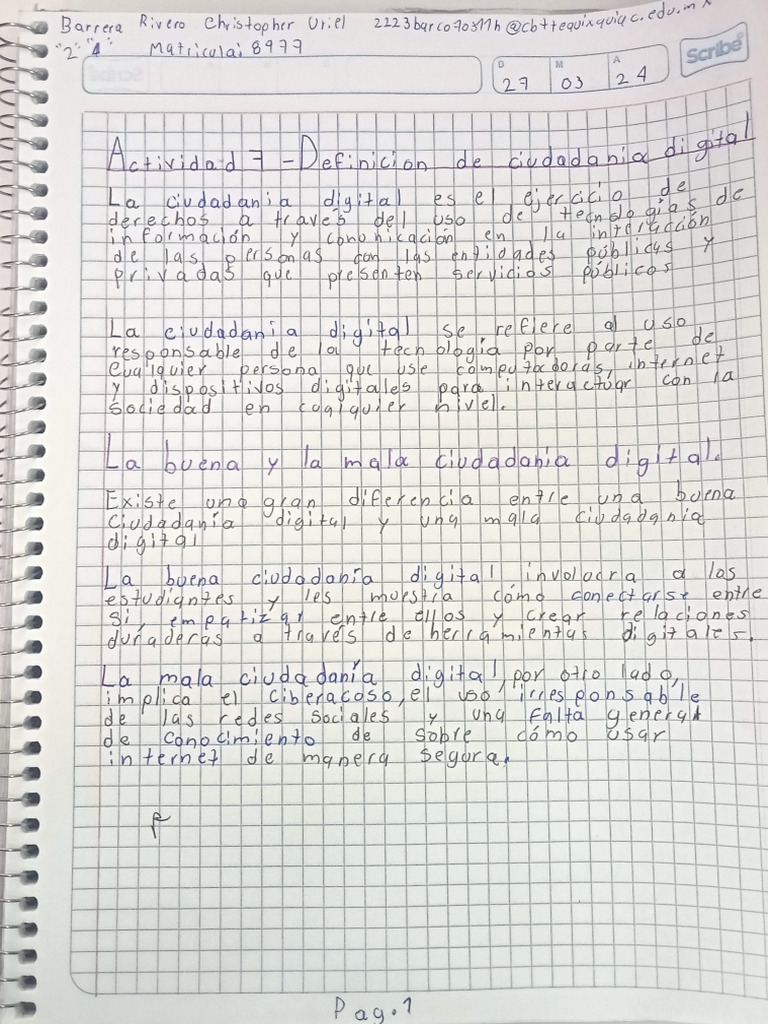 Barrera Rivero Christopher Uriel 2223barco70311h@cbttequixquiac.edu.mx
"2" "A" Matricula: 8977
D M A
27 03 24
Scribe
Actividad 7 - Definicion de ciudadania digital
La ciudadania digital es el ejercicio de
derechos a través del uso de tecnologías de
información y comonicación en la interacción
de las personas con las entidades públicas y
privadas que presenten servicios públicos
La ciudadania digital se refiere al uso
responsable de la tecnología por parte de
cualquier persona que use computadoras, internet
y dispositivos digitales para interactuar con la
sociedad en cualquier nivel.
La buena y la mala ciudadania digital.
Existe una gran diferencia entre una buena
ciudadanía digital y una mala ciudadania
digital
La buena ciudadanía digital involucra a los
estudiantes y les muestra cómo conectarse entre
si, empatizar entre ellos y crear relaciones
duraderas a través de herramientas digitales.
La mala ciudadanía digital, por otro lado,
implica el ciberacoso, el uso irresponsable
de las redes sociales y una falta general
de conocimiento de sobre cómo usar
internet de manera segura.
Pag. 1